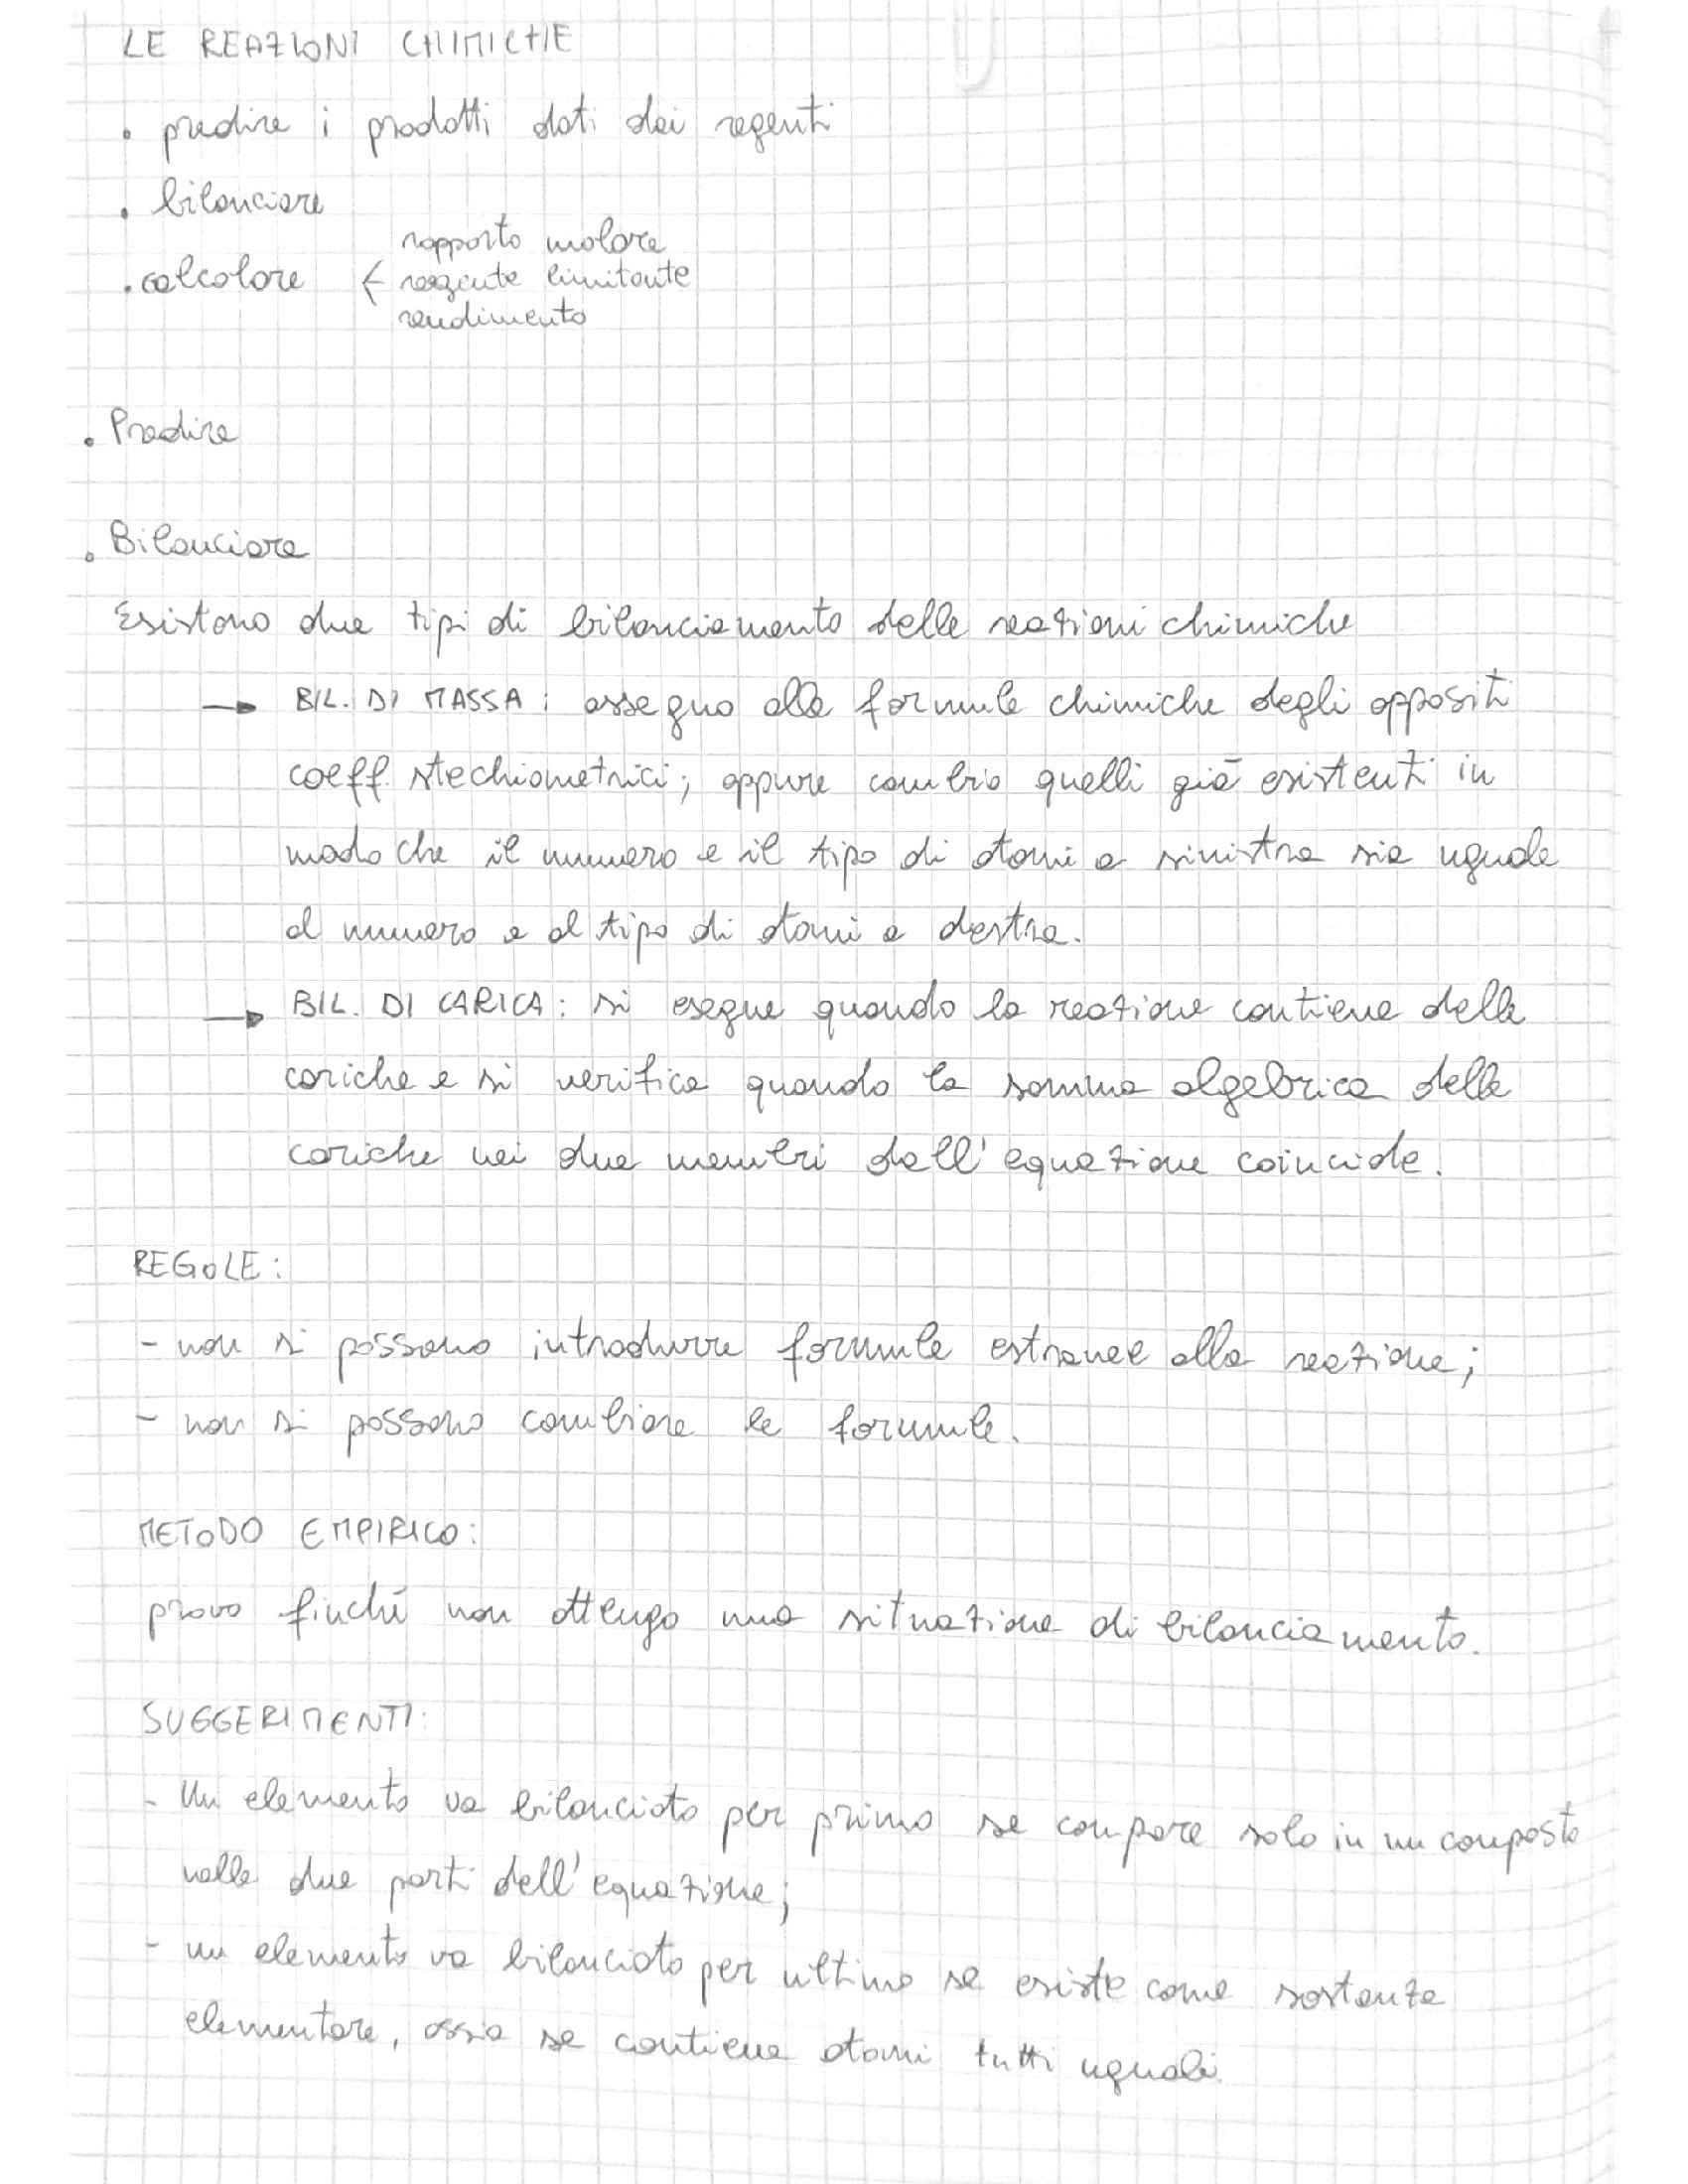 LE REAZIONI CHIMICHE
• predire i prodotti dati dai regenti
• bilanciare
rapporto molare
• calcolare < reagente limitante
rendimento
• Predire
• Bilanciare
Esistono due tipi di bilanciamento delle reazioni chimiche
→ BIL. DI MASSA: assegno alle formule chimiche degli appositi
coeff. stechiometrici; oppure cambio quelli già esistenti in
modo che il numero e il tipo di atomi a sinistra sia uguale
al numero e al tipo di atomi a destra.
→ BIL. DI CARICA: si esegue quando la reazione contiene delle
cariche e si verifica quando la somma algebrica delle
cariche nei due membri dell'equazione coincide.
REGOLE:
- non si possono introdurre formule estranee alla reazione;
- non si possono cambiare le formule.
METODO EMPIRICO:
provo finché non ottengo una situazione di bilanciamento.
SUGGERIMENTI:
- Un elemento va bilanciato per primo se compare solo in un composto
nelle due parti dell'equazione;
- un elemento va bilanciato per ultimo se esiste come sostanza
elementare, ossia se contiene atomi tutti uguali.